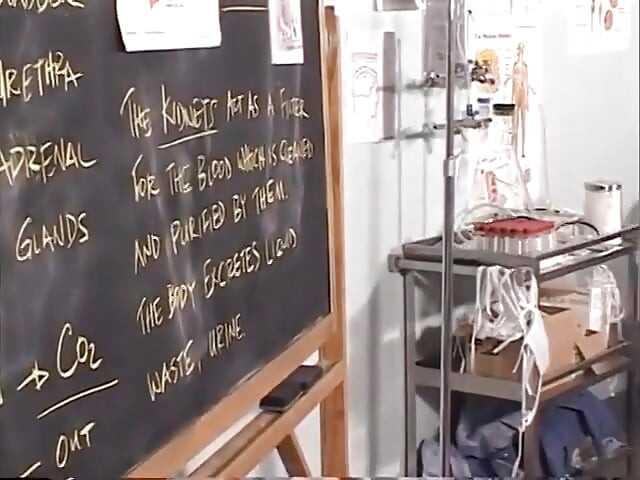 URETHRA
ADRENAL
GLANDS
→ CO2
OUT
THE KIDNEYS ACT AS A FILTER
FOR THE BLOOD WHICH IS CLEANED
AND PURIFIED BY THEM.
THE BODY EXCRETES LIQUID
WASTE, URINE